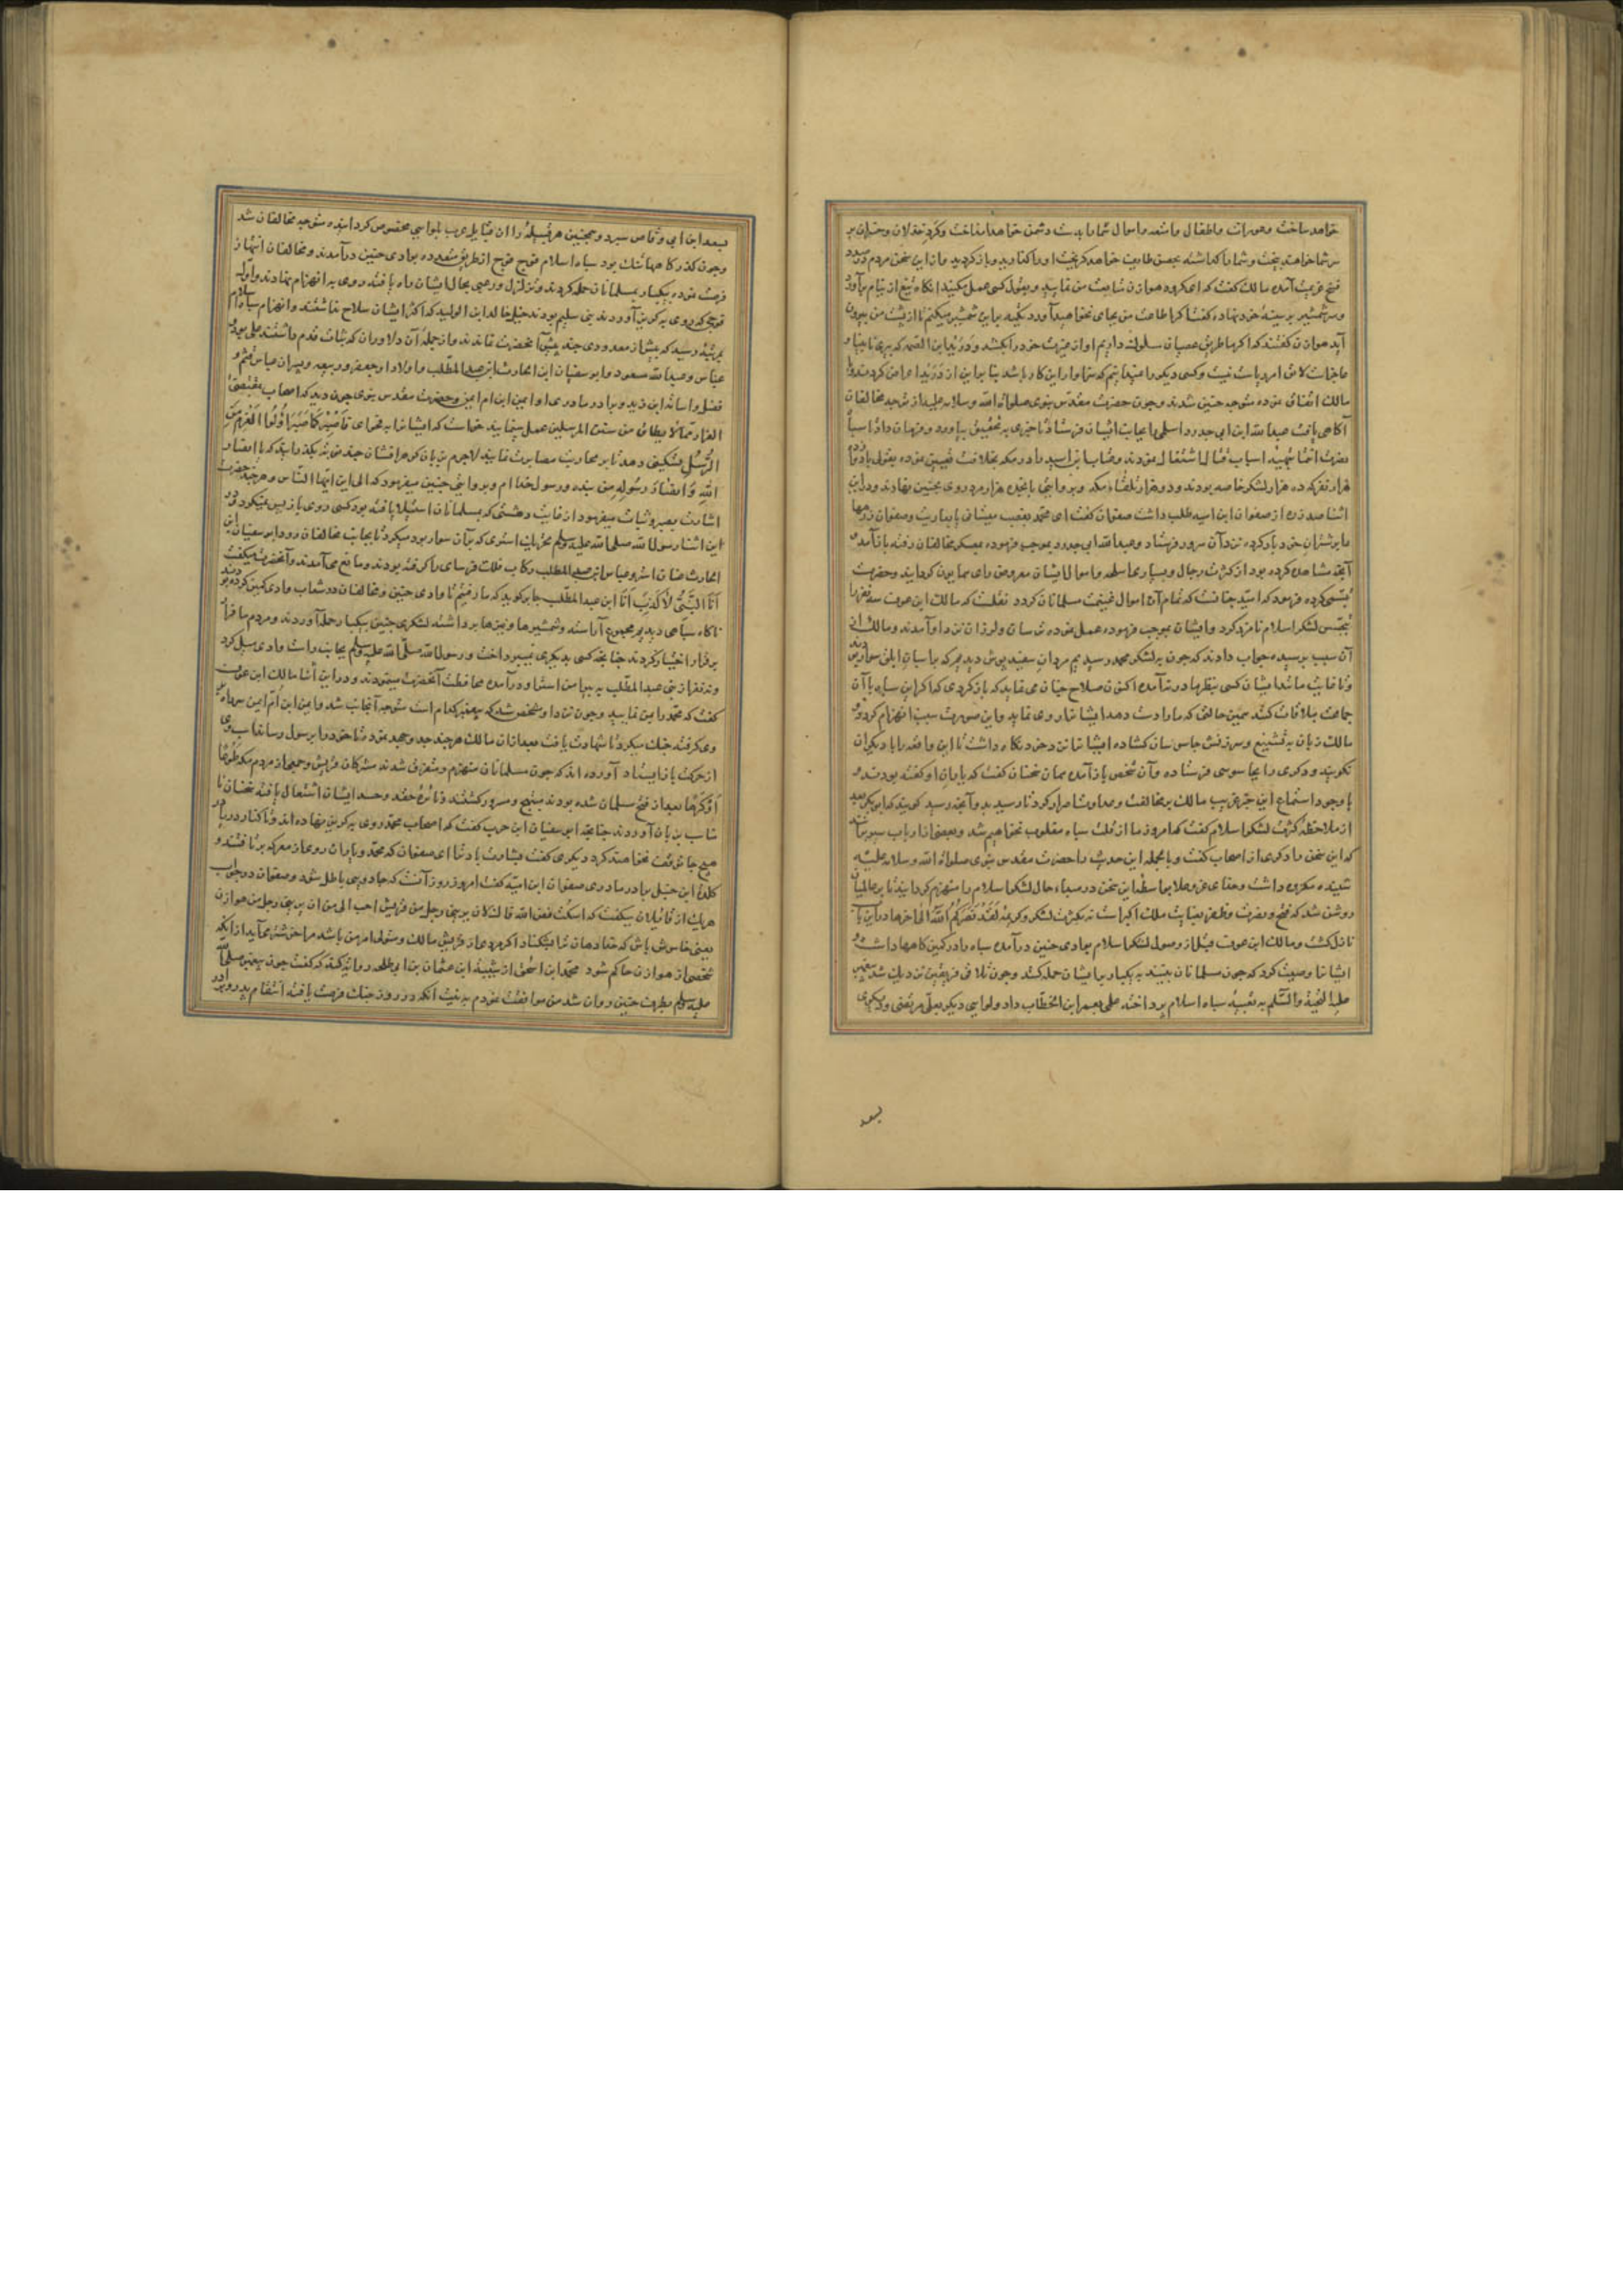 خواهد ساخت و عورات و اطفال و امتعه و اموال شما بدست دشمن خواهد انداخت و کرد خذلان و خسران بر
سر شما خواهد بیخت و شما را گذاشته بحصن طایف خواهد گریخت او را گذارید و باز گردید و از این سخن مردم
آمده مالک گفت که ای گروه هوازن متابعت من نمایید و بقول کسی عمل مکنید آنگاه تیغ از نیام برآورد
و سر شمشیر بر سینهٔ خود نهاده گفت اگر اطاعت من بجای نخواهید آورد تکیه براین شمشیر میکنم تا از پشت من بیرون
آید هوازن گفتند که اگر ما طریق عصیان سلوک داریم او از غیرت خود را بکشد و درید ابن الصمه که پیری نابینا و
مالک اتفاق نموده متوجه حنین شدند و چون حضرت مقدس نبوی صلوات الله و سلامه علیه از توجه مخالفان
آگاهی یافت عبدالله ابن ابی حدرد اسلمی را بجانب ایشان فرستاد تا خبری به تحقیق بیاورد و فرمان داد تا سپاه
نصرت انتما بتهیهٔ اسباب قتال اشتغال نمودند و عتاب ابن اسید را در مکه بخلافت تعیین نموده بقولی با دوازده
هزار نفر که ده هزار لشکر خاصه بودند و دو هزار طلقاء مکه و بروایتی با پانزده هزار مرد روی بحنین نهادند و در این
اثنا صد زره از صفوان ابن امیه طلب داشت صفوان گفت ای محمد بغصب میستانی یا بعاریت و صفوان زرهها
را بر شتران خود بار کرده نزد آن سرور فرستاد و عبدالله ابی حدرد بموجب فرموده بمعسکر مخالفان رفته باز آمد و
آنچه مشاهده کرده بود از کثرت رجال و بسیاری اسلحه و اموال ایشان معروض رای همایون گردانید و حضرت
تبسمی کرده فرمود که امید چنانست که تمام آن اموال غنیمت مسلمانان گردد نقلست که مالک ابن عوف سه نفر را
بتجسس لشکر اسلام نامزد کرد و ایشان بموجب فرموده عمل نموده ترسان و لرزان نزد او آمدند و مالک از
آن سبب پرسیده جواب دادند که چون به لشکر محمد رسیدیم مردان سفید پوش دیدیم که بر اسبان ابلق سوار بودند
و تا غایت مانند ایشان کسی بنظر ما در نیامده اکنون صلاح چنان می نماید که باز گردی که اگر این سپاه با آن
جماعت ملاقات کنند همین حالتی که ما را دست داده ایشانرا روی نماید و این صورت سبب انهزام گردد و
مالک زبان به تشنیع و سرزنش جاسوسان گشاده ایشانرا نزد خود نگاه داشت تا این واقعه را با دیگران
نگویند و دیگری را بجاسوسی فرستاده و آن شخص باز آمده همان سخنان گفت که یاران او گفته بودند و
با وجود استماع این خبر غریب مالک بر مخالفت و معاونت اصرار کرد تا رسید بدو آنچه رسید گویند که ابوبکر بعد
از ملاحظهٔ کثرت لشکر اسلام گفت که امروز ما از قلت سپاه مغلوب نخواهیم شد و بعضی از ارباب سیر
که این سخن را دیگری از اصحاب گفت و بالجمله این حدیث را حضرت مقدس نبوی صلوات الله و سلامه علیه
شنیده مکروه داشت و خدای عز و علا بواسطهٔ این سخن در مبداء حال لشکر اسلام را منهزم گردانید تا بر عالمیان
روشن شد که فتح و نصرت و ظفر بعنایت ملک اکبر است نه بکثرت لشکر و کریمهٔ لَقَدْ نَصَرَکُمُ اللّهُ الی آخرها در این باب
نازل گشت و مالک ابن عوف قبل از وصول لشکر اسلام بوادی حنین درآمده سپاه را در کمین کاهها داشت و
ایشانرا وصیت کرد که چون مسلمانان بیتند به یکبار بر ایشان حمله کنند و چون تلاقی فریقین نزدیک شد پیغمبر
علیه التحیة والسلم به تعبیهٔ سپاه اسلام پرداخته علمی بعمر ابن الخطاب داد و لوایی دیگر بعلی مرتضی و دیگری
بسعد
بسعد ابن ابی وقاص سپرد و همچنین هر قبیلهٔ را از قبایل عرب بلوایی مخصوص گردانیده متوجه مخالفان شد
و چون گذرگاهها تنگ بود سپاه اسلام فوج فوج از طریق متعدده بوادی حنین درآمدند و مخالفان انتهاز
فرصت نموده بیکبار بمسلمانان حمله کردند و تزلزل و رعبی بحال ایشان راه یافته روی به انهزام نهادند و اول
فوجی که روی به گریز آوردند بنی سلیم بودند خیل خالد ابن الولید که اکثر ایشان سلاح نداشتند و انهزام سپاه اسلام
بمرتبهٔ رسید که بیش از معدودی چند پیش آنحضرت نماندند و از جمله آن دلاوران که ثبات قدم داشتند علی بود و
عباس و عبدالله مسعود و ابوسفیان ابن الحارث ابن عبد المطلب و اولاد او جعفر و ربیعه و پسران عباس قثم و
فضل و اسامة ابن زید و برادر مادری او ایمن ابن ام ایمن و حضرت مقدس نبوی چون دید که اصحاب بمقتضی
الفرار مما لا یطاق من سنن المرسلین عمل مینمایند خواست که ایشانرا به فحوای فَاصْبِرْ کَمَا صَبَرَ اُولُوا الْعَزْمِ مِنَ
الرُّسُلِ تسکین دهد تا بر محاربت مصابرت نمایند لاجرم بزبان گوهر افشان چند نوبت بگذرانید که یا انصار
اللّهِ وَ اَنْصَارَ رَسُولِهِ من بنده و رسول خدا ام و بروایتی چنین میفرمود که الی این ایها الناس و هر چند حضرت
اشارت بصبر و ثبات میفرمود از غایت دهشتی که بمسلمانان استیلا یافته بود کسی روی باز پس نمیکرد و در
این اثنا رسول الله صلی الله علیه وسلم تحریک استری که بر آن سوار بود میکرد تا بجانب مخالفان رود ابوسفیان ابن
الحارث عنان استر و عباس ابن عبد المطلب رکاب فلک فرسای را گرفته بودند و مانع می آمدند و آنحضرت میگفت
اَنَا النَّبِیُّ لاَ کَذِبْ اَنَا ابن عبد المطلب جابر گوید که ما رفتیم تا وادی حنین و مخالفان در شعاب وادی کمین کرده بودند
ناگاه سپاهی دیدیم مجموع آراسته و شمشیرها و نیزها برداشته لشکری چنین بیکبار حمله آوردند و مردم ما فرار
بر قرار اختیار کردند چنانچه کسی بدیگری نمیپرداخت و رسول الله صلی الله علیه وسلم بجانب راست وادی میل کرد
و نه نفر از بنی عبد المطلب به پیرامن استر او درآمده محافظت آنحضرت مینمودند و در این اثنا مالک ابن عوف
گفت که محمد را بمن نمایید و چون نزد او مشخص شد که پیغمبر کدام است متوجه آنجانب شد و ایمن ابن ام ایمن سر راه بر
وی گرفته جنگ میکرد تا شهادت یافت بعد از آن مالک هر چند جد و جهد نمود تا خود را برسول رساند اسب وی
از حرکت باز ایستاد آورده اند که چون مسلمانان منهزم و متفرق شدند مشرکان قریش و جمعی از مردم مکه طَوْعًا
اَوْ کَرْهًا بعد از فتح مسلمان شده بودند مبتهج و مسرور گشتند و نائرهٔ حقد و حسد ایشان اشتعال یافته سخنان نا
مناسب بزبان آوردند چنانچه ابوسفیان ابن حرب گفت که اصحاب محمد روی به گریز نهاده اند و تا کنار دریا در
هیچ جا توقف نخواهند کرد و دیگری گفت بشارت باد ترا ای صفوان که محمد و یاران روی از معرکه بر تافتند و
کلدة ابن حنبل برادر مادری صفوان ابن امیه گفت امروز روز آنست که جادویی باطل شود و صفوان در جواب
هر یک از قائلان میگفت که اسکت فض الله فاک لان یربنی رجل من قریش احب الی من ان یربنی رجل من هوازن
یعنی خاموش باش که خدا دهان ترا بشکناد اگر مردی از قریش مالک و متولی امر من باشد مرا خوشتر می آید از آنکه
شخصی از هوازن حاکم شود محمد ابن اسحق از شیبة ابن عثمان بن ابی طلحه روایت کند که گفت چون پیغمبر صلی الله
علیه وسلم بطرف حنین روان شد من موافقت نمودم به نیت آنکه در روز جنگ فرصت یافته انتقام پدر و برادر